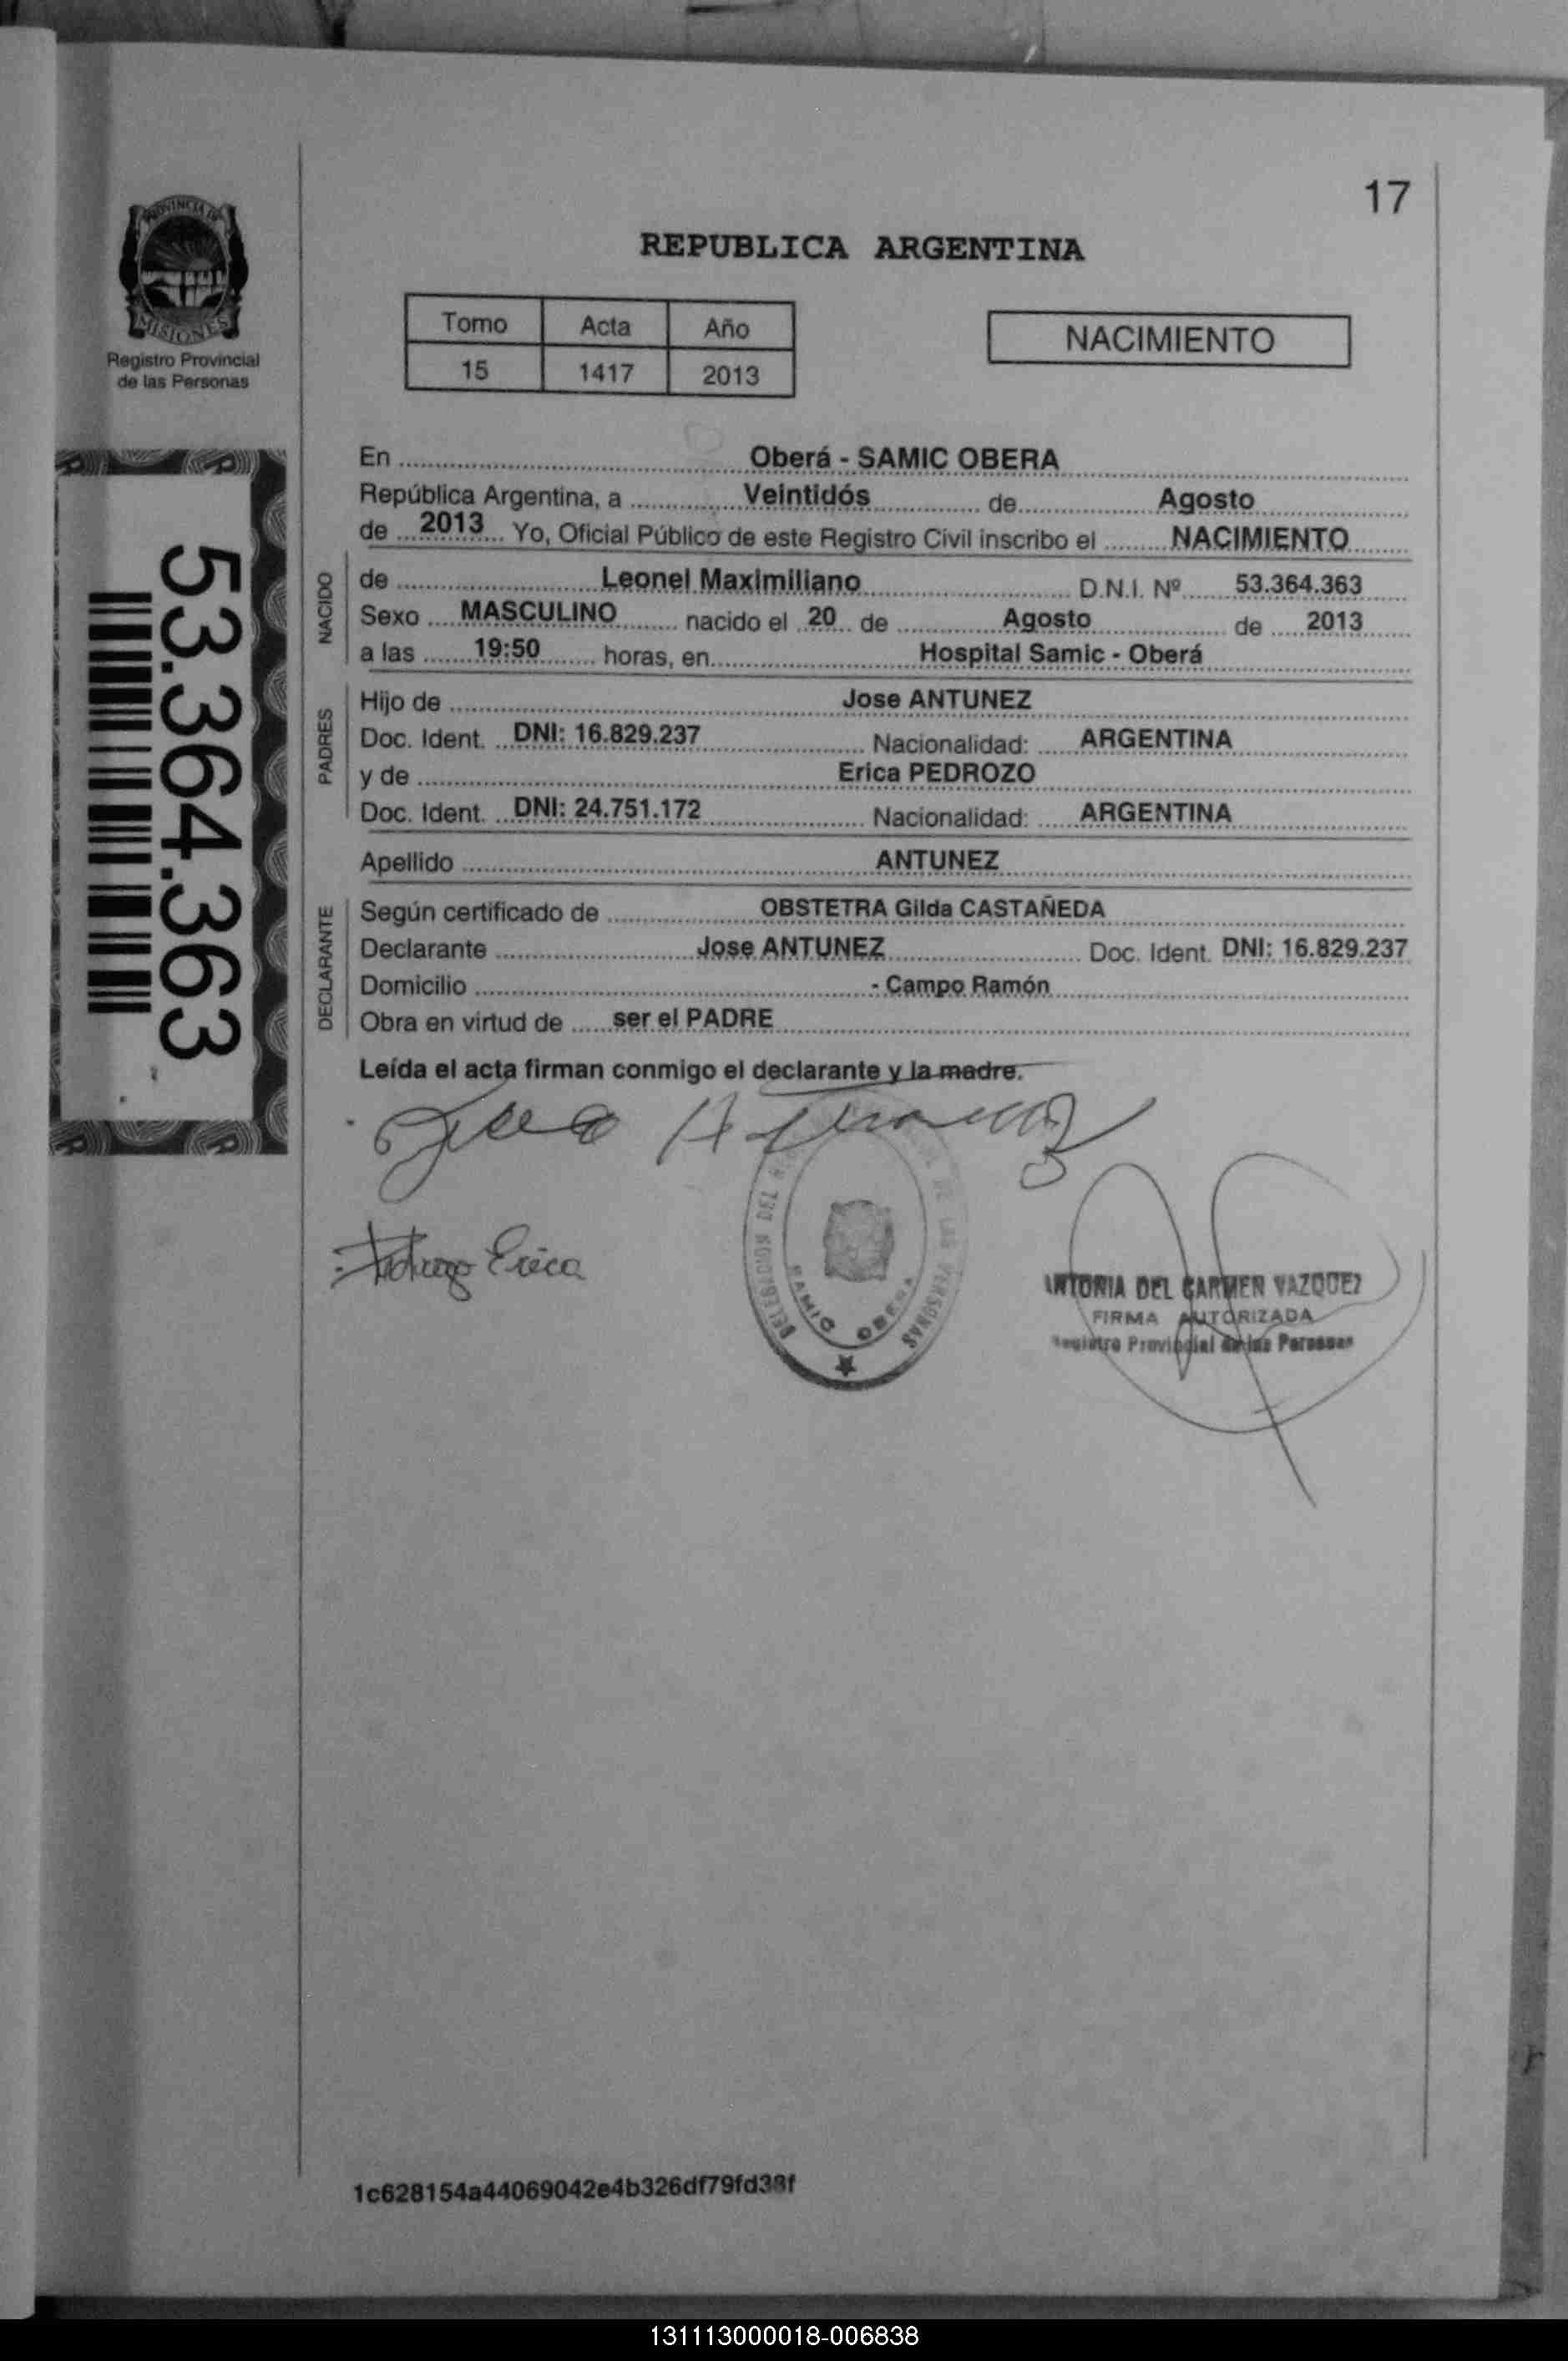 17
PROVINCIA DE
MISIONES
Registro Provincial
de las Personas
REPUBLICA ARGENTINA
Tomo Acta Año
15 1417 2013
NACIMIENTO
53.364.363
En Oberá - SAMIC OBERA
República Argentina, a Veintidós de Agosto
de 2013 Yo, Oficial Público de este Registro Civil inscribo el NACIMIENTO
NACIDO
de Leonel Maximiliano D.N.I. Nº 53.364.363
Sexo MASCULINO nacido el 20 de Agosto de 2013
a las 19:50 horas, en Hospital Samic - Oberá
PADRES
Hijo de Jose ANTUNEZ
Doc. Ident. DNI: 16.829.237 Nacionalidad: ARGENTINA
y de Erica PEDROZO
Doc. Ident. DNI: 24.751.172 Nacionalidad: ARGENTINA
Apellido ANTUNEZ
DECLARANTE
Según certificado de OBSTETRA Gilda CASTAÑEDA
Declarante Jose ANTUNEZ Doc. Ident. DNI: 16.829.237
Domicilio - Campo Ramón
Obra en virtud de ser el PADRE
Leída el acta firman conmigo el declarante y la madre.
Erica
DELEGACION DEL DE LAS PERSONAS
SAMIC OBERA
DEL CARMEN VAZQUEZ
FIRMA AUTORIZADA
Registro Provincial de las Personas
1c628154a44069042e4b326df79fd38f
131113000018-006838